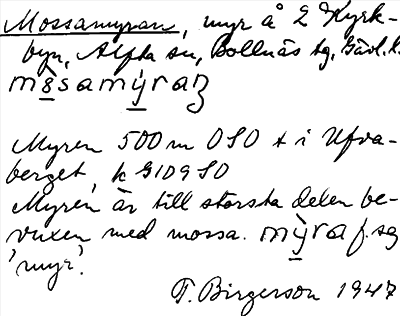 Mossamyran, myr å 2 Kyrk-
byn, Alfta sn, Bollnäs tg, Gävl. l.
Myren 500 m OSO + i Ufva-
berget, k G109 SO
Myren är till största delen be-
vuxen med mossa. mỳra f. sg
'myr'.
T. Birgerson 1947